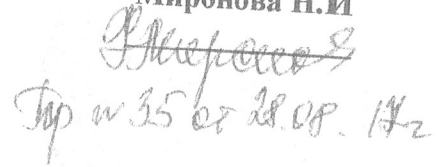 Миронова Н.И
Пр № 35 от 28.08.17г